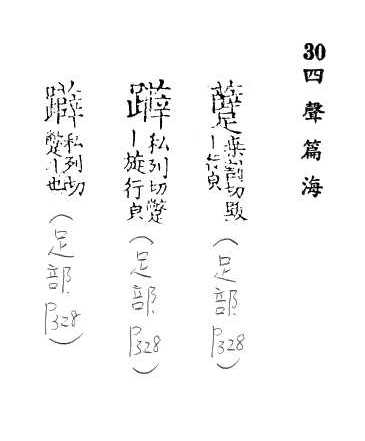 30四聲篇海
躠 桑割切
丨行皃
(足部P328)
私列切蹩
丨旋行皃
(足部P328)
私列切
蹩丨也
(足部P328)